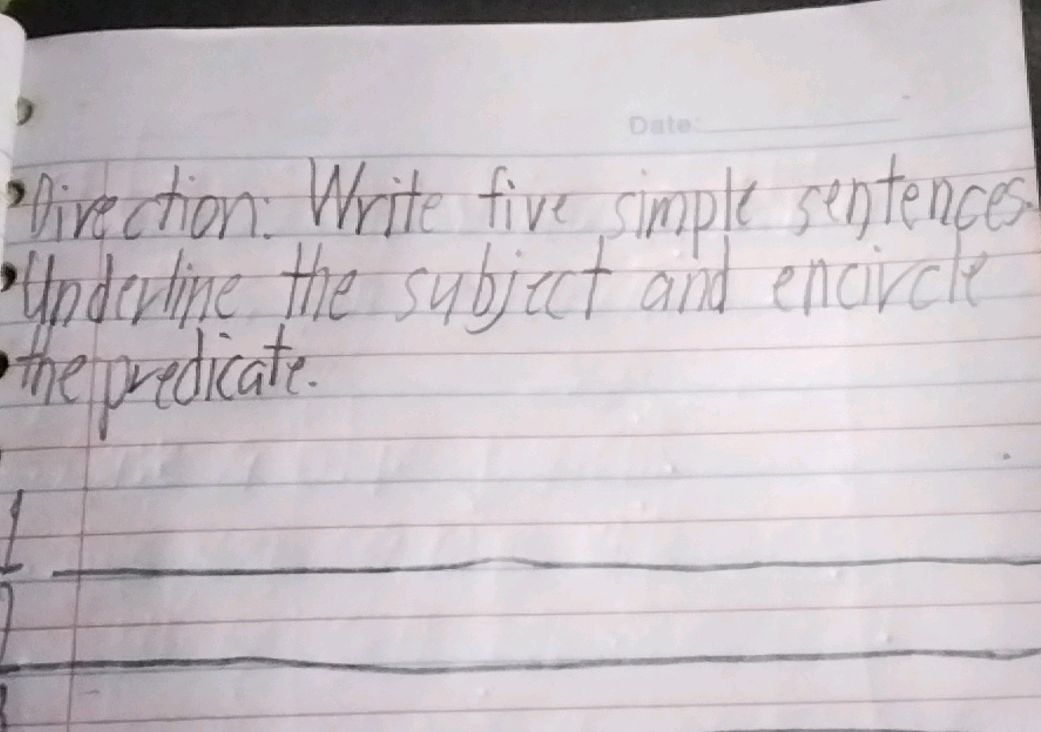 Date:
Direction: Write five simple sentences.
Underline the subject and encircle
the predicate.
1
2
3